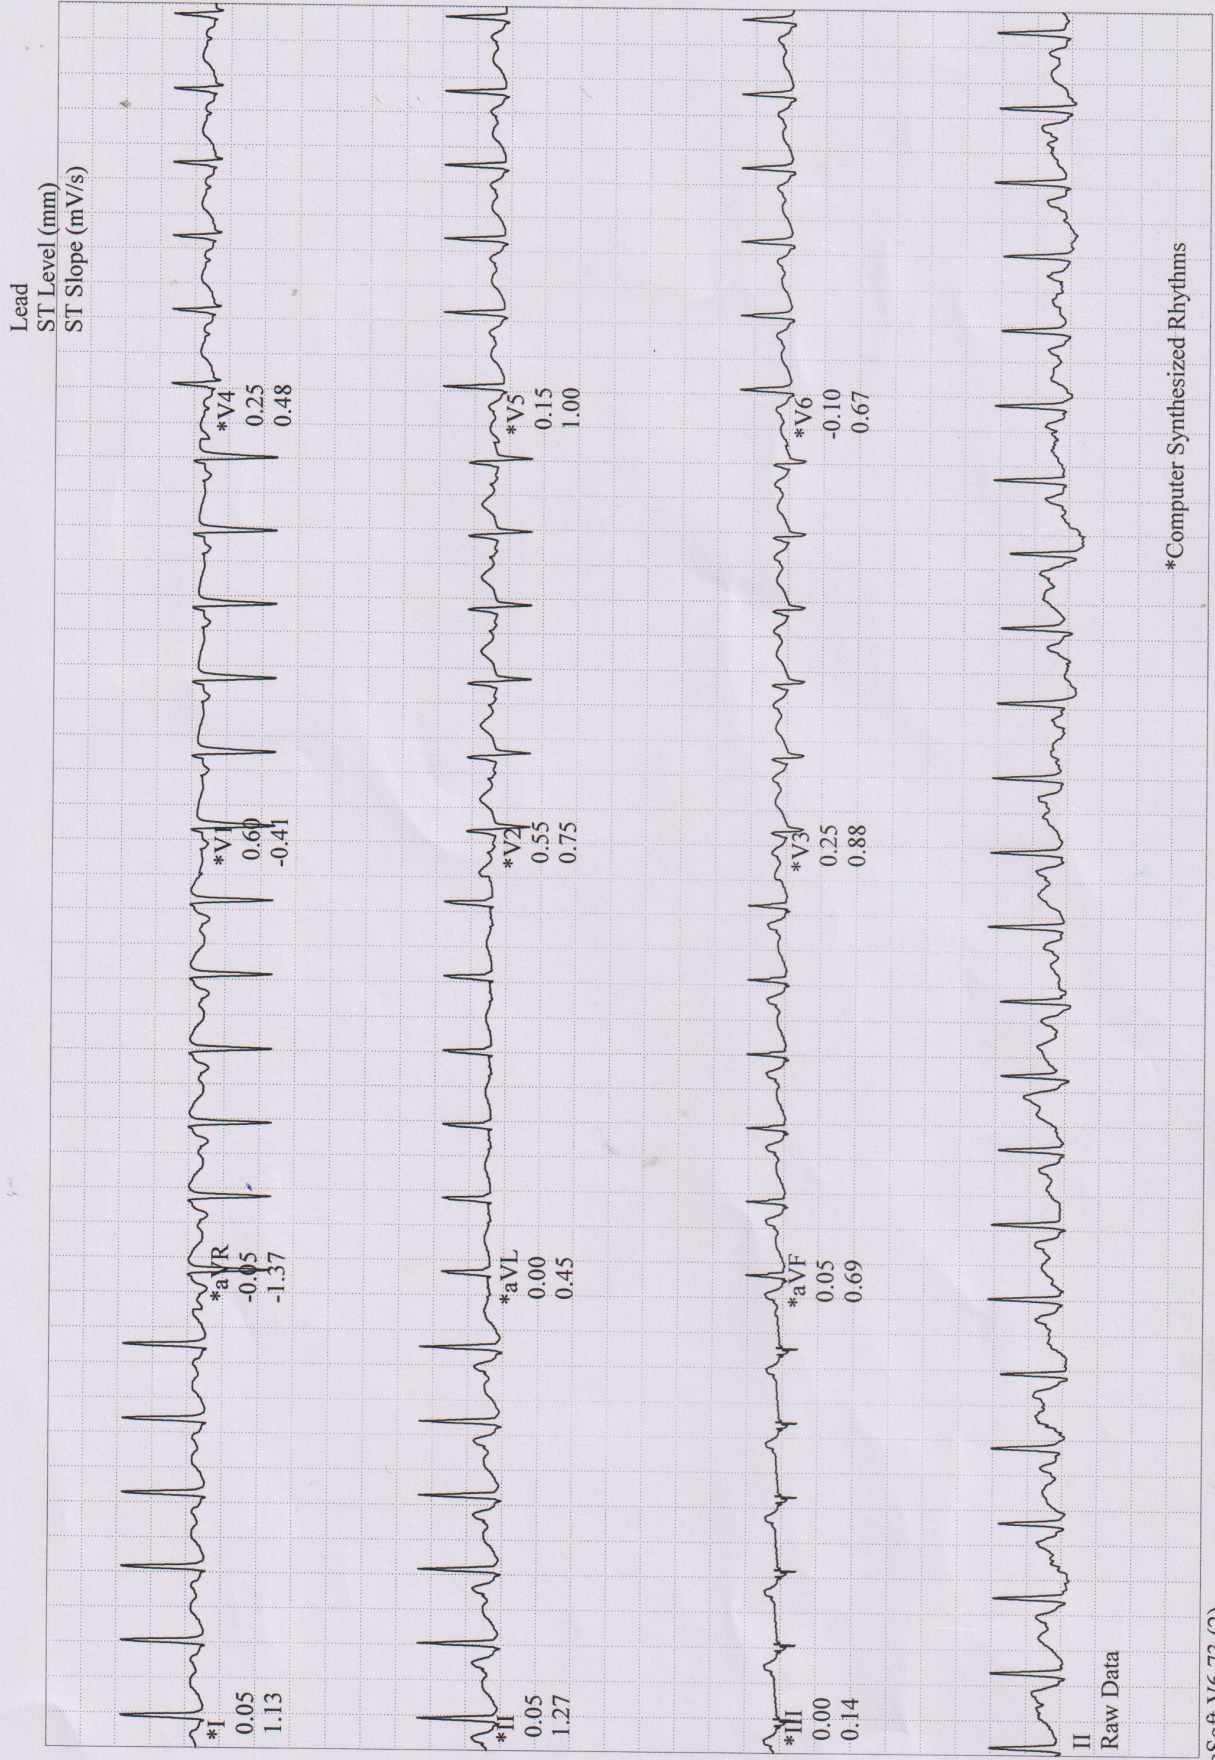 Lead
ST Level (mm)
ST Slope (mV/s)
*I
0.05
1.13
*aVR
-0.05
-1.37
*V1
0.60
-0.41
*V4
0.25
0.48
*II
0.05
1.27
*aVL
0.00
0.45
*V2
0.55
0.75
*V5
0.15
1.00
*III
0.00
0.14
*aVF
0.05
0.69
*V3
0.25
0.88
*V6
-0.10
0.67
II
Raw Data
*Computer Synthesized Rhythms
Soft V6.73 (2)